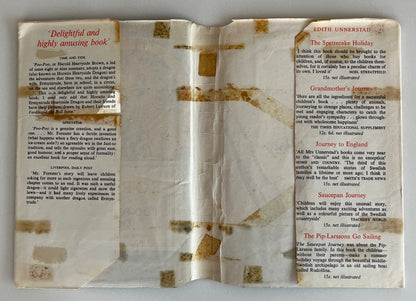 'Delightful and
highly amusing book'
TIME AND TIDE
'Poo-Poo, or Harold Harrytode Brown, a lad
of some eight or nine summers, adopts a dragon
(also known as Horatio Heavyside Dragon) and
the adventures that these two, and the dragon's
wife, Ermyntrude, have in school, in a circus,
on the sea and elsewhere are quite astonishing.
This is a delightful and highly amusing
book; I and only add that Horatio and
Ermyntrude Horatio Dragon and their friends
have their pictures drawn by Robert Lawson of
Ferdinand the Bull fame.'
SPECTATOR
'Poo-Poo is a genuine creation, and a good
one . . . Mr. Forester has a fertile invention
(what happens when a fiery dragon swallows an
ice-cream soda?) an agreeable wit in the fairies
tradition, and tells the episodes with great ease,
good humour, and a proper sense of formality:
an excellent book for reading aloud.'
LIVERPOOL DAILY POST
'Mr. Forester's story will leave children
asking for more as each ingenious and amusing
chapter comes to an end. It was such a useful
dragon—it could light cigarettes and mow the
lawn—and it had many lively experiences in
company with another dragon called Ermyn-
trude.'
EDITH UNNERSTAD
The Spettecake Holiday
'I think this book should be brought to the
attention of those who buy books for
children, and, of course, to the children them-
selves, for it certainly has a peculiar charm of
its own. I loved it' NOEL STREATFEILD
15s. net illustrated
Grandmother's Journey
'Here are all the ingredients for a successful
children's book . . . plenty of animals,
journeying to strange places, challenges to be
met and engaging characters to catch the
young reader's sympathy . . . glows through-
out with wholesome happiness'
THE TIMES EDUCATIONAL SUPPLEMENT
12s. 6d. net illustrated
Journey to England
'All Mrs Unnerstad's books come very near
to the "classic" and this is no exception'
TIME AND COUNTRY. 'The third of this
author's remarkable stories of Swedish
families a lifetime or more ago; I think it
may well be the best' SMITH'S TRADE NEWS
15s. net illustrated
Saucepan Journey
'Children will enjoy this unusual story,
which includes many exciting adventures as
well as a colourful picture of the Swedish
countryside' TEACHERS WORLD
15s. net illustrated
The Pip-Larssons Go Sailing
The Saucepan Journey was about the Pip-
Larsson family. In this book the children—
without their parents—make a summer
holiday voyage through the beautiful middle-
Swedish archipelago in an old sailing boat
called Rudolfina.
15s. net illustrated